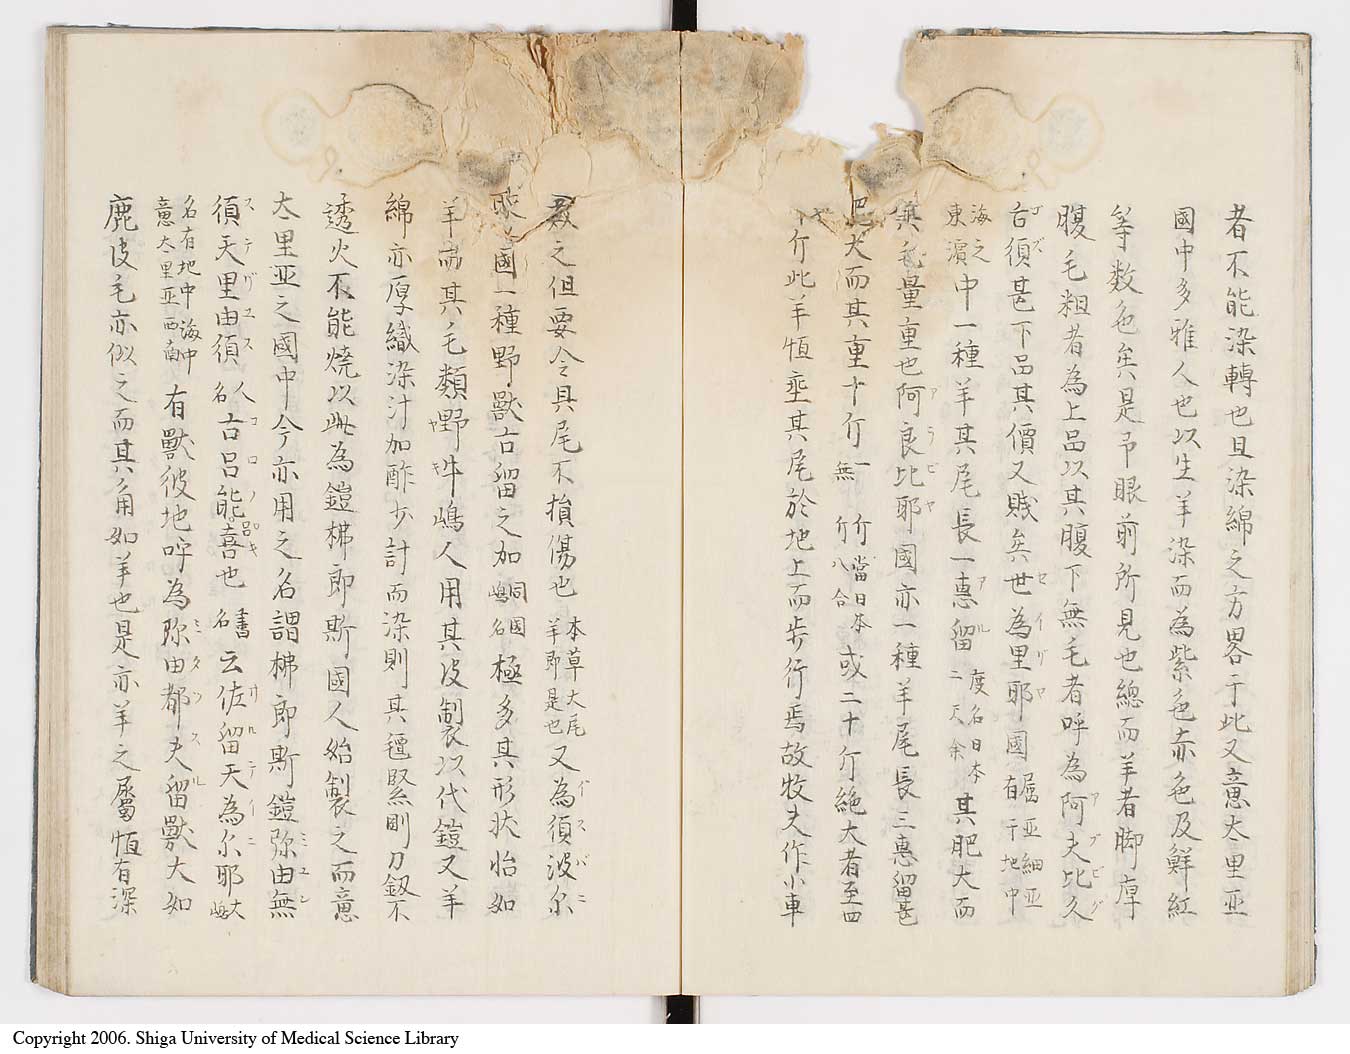 者不能染轉也且染綿之方畧于此又意太里亞
國中多雅人也以生羊染而為紫色赤色及鮮紅
等数色矣是予眼前所見也總而羊者脚厚
腹毛粗者為上品以其腹下無毛者呼為阿夫比久
古須甚下品其價又賎矣世為里耶國有屬亞細亞于地中
海之東濵中一種羊其尾長一惠留度名日本二天余其肥大而
無毛量重也阿良比耶國亦一種羊尾長三惠留甚
肥大而其重十斤一斤當日本無斤八合或二十斤絶大者至四
十斤此羊恒垂其尾於地上而步行焉故牧夫作小車
載之但要令其尾不損傷也本草大尾羊即是也又為須波尓
國一種野獸古留之加同國嶋名極多其形状恰如
羊而其毛類野牛嶋人用其皮製以代鎧又羊
綿亦厚織染汁加酢少計而染則其氊緊剛刀釼不
透火不能燒以此為鎧梻郎斯國人始製之而意
太里亞之國中今亦用之名謂梻郎斯鎧弥由無
須天里由須人名古呂能喜也書名云佐留天為尓耶大嶋
名有地中海中意太里亞西南有獸彼地呼為弥由都夫留獸大如
鹿皮毛亦似之而其角如羊也是亦羊之屬恒有深